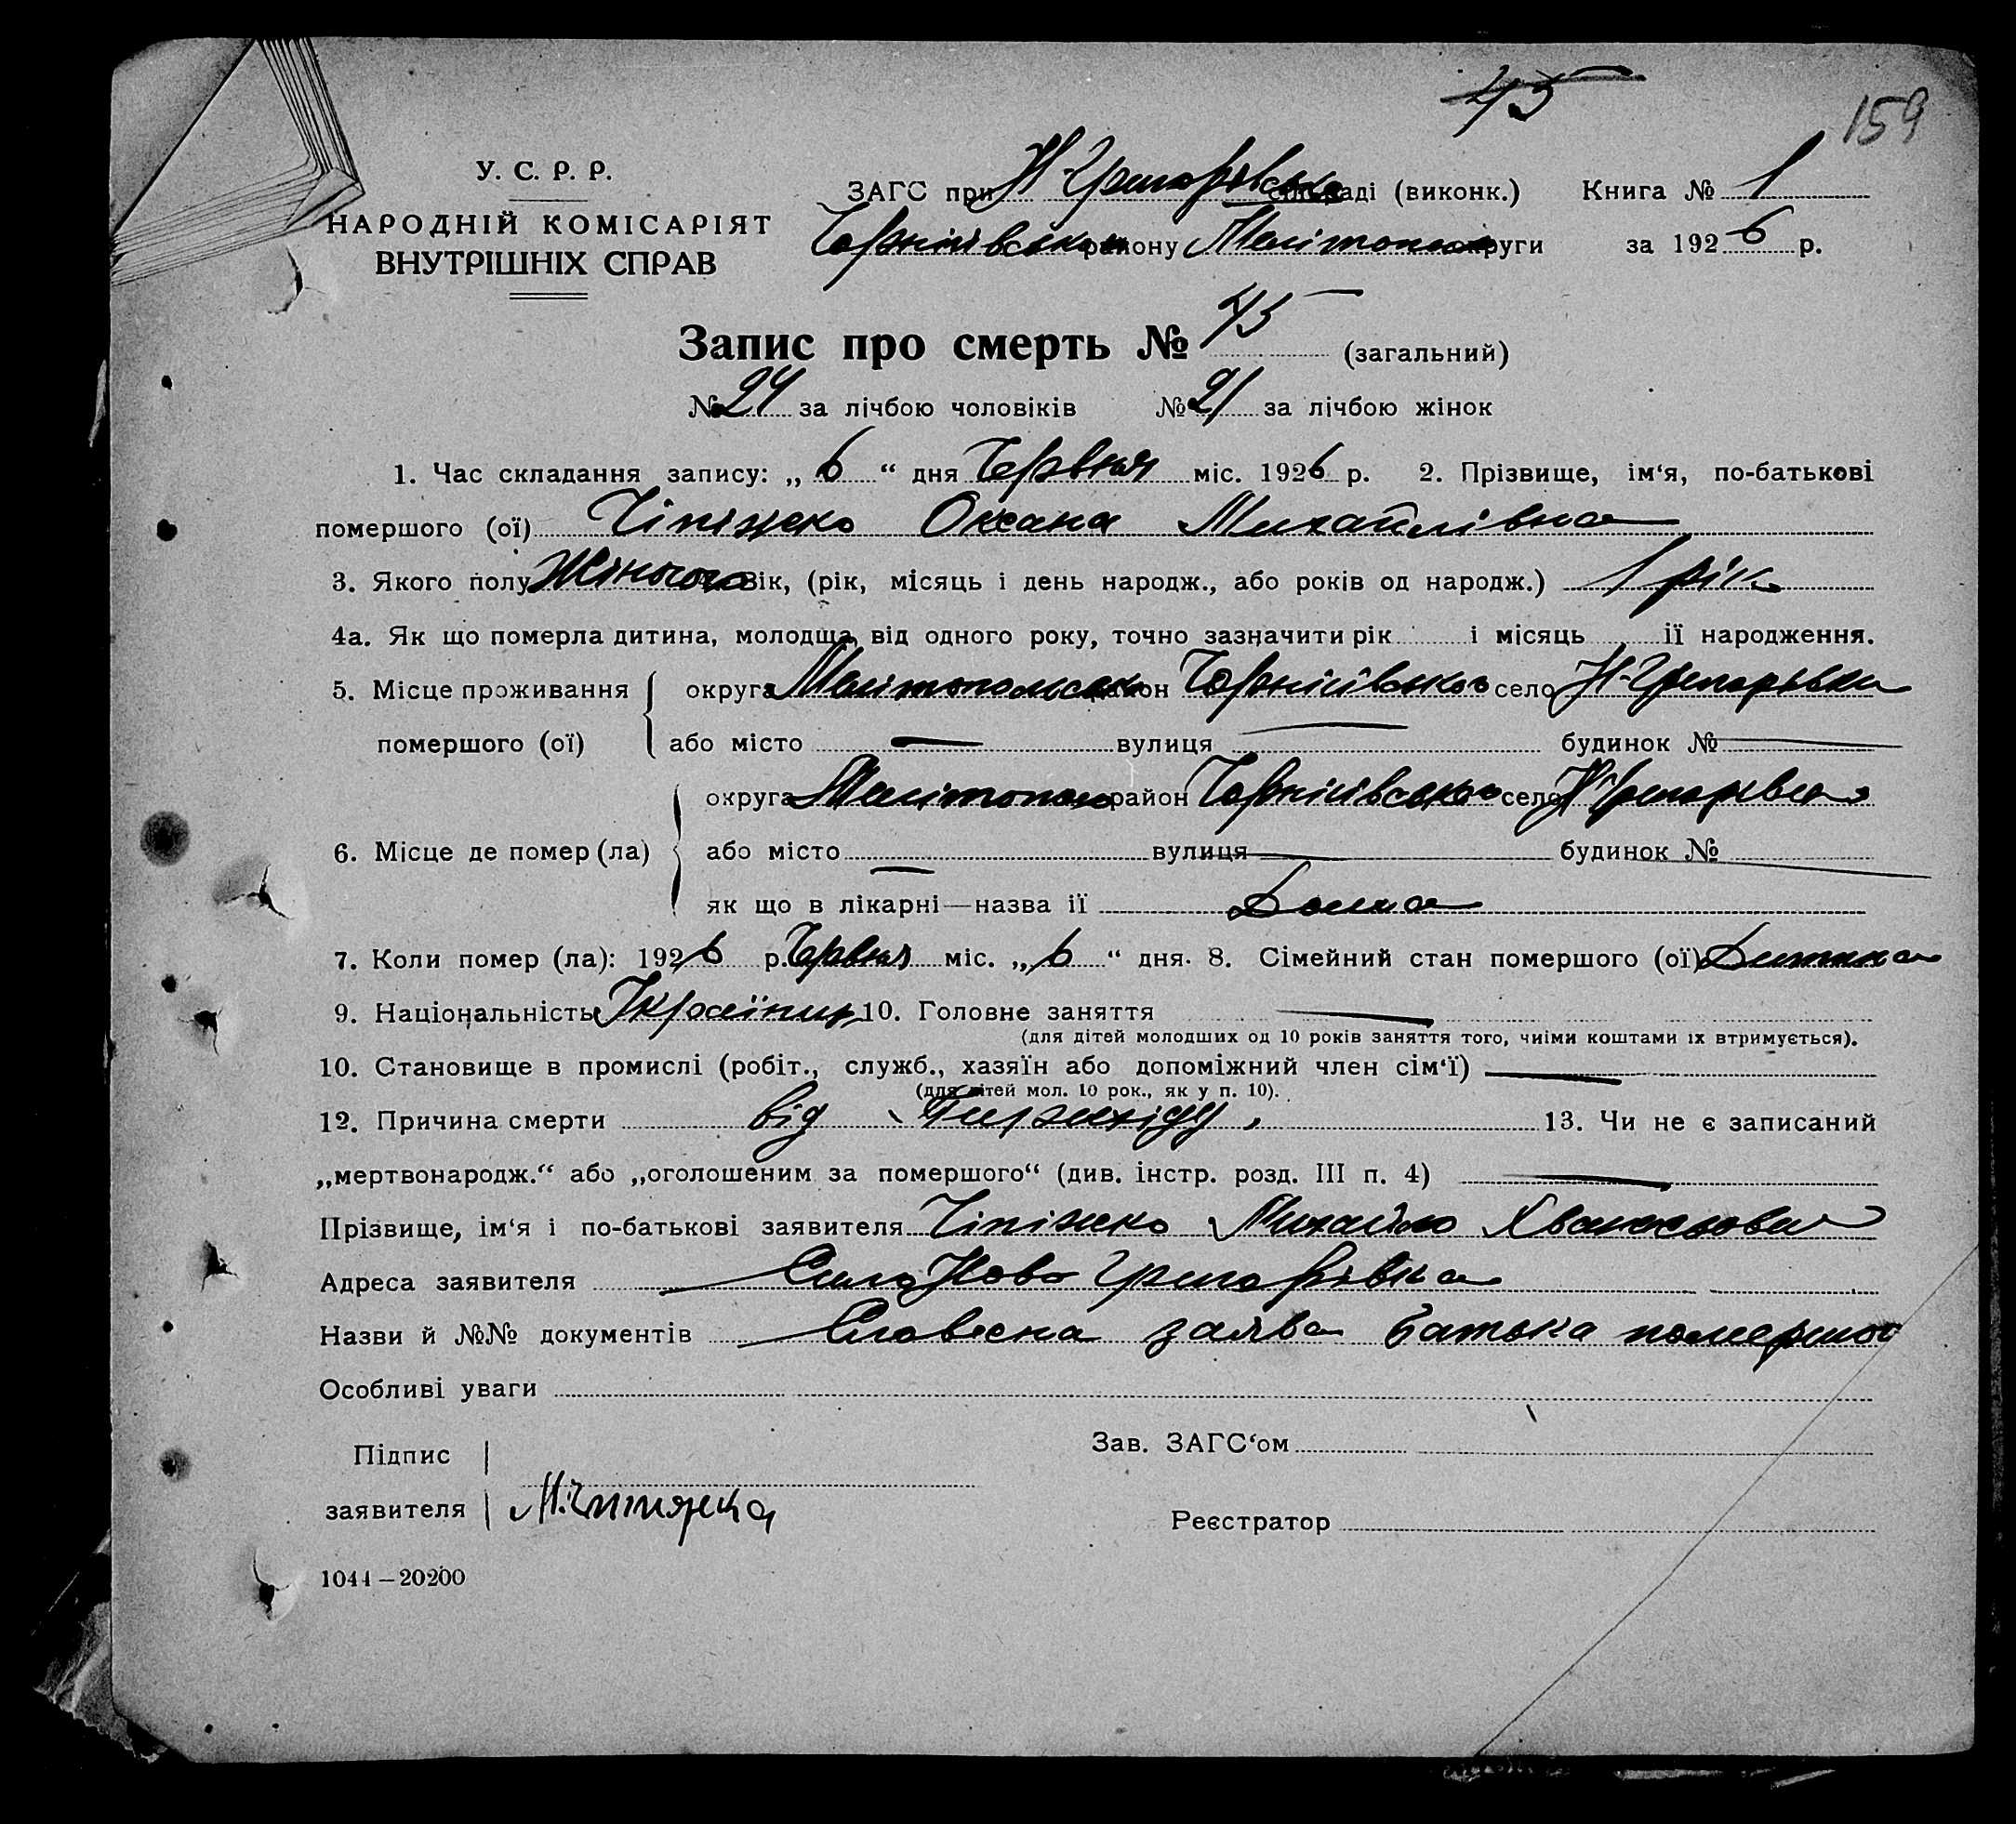 45
159
У. С. Р. Р.
НАРОДНІЙ КОМІСАРІЯТ
ВНУТРІШНІХ СПРАВ
ЗАГС при Н-Григорівськ сільраді (виконк.) Книга № 1
Чернігівськом району Мелітополь округи за 1926 р.
Запис про смерть № 45 (загальний)
№ 24 за лічбою чоловіків № 21 за лічбою жінок
1. Час складання запису: „ 6 “ дня Червня міс. 1926 р. 2. Прізвище, ім‘я, по-батькові
помершого (ої) Чіпіжко Оксана Михайлівна
3. Якого полу Жіночого Вік, (рік, місяць і день народж., або років од народж.) 1 рік
4а. Як що померла дитина, молодща від одного року, точно зазначити рік і місяць ії народження.
5. Місце проживання округа Мелітопольська район Чернігівсько село Н-Григорівка
помершого (ої) або місто — вулиця — будинок № —
округа Мелітополь район Чернігівсько село Н Григорівка
6. Місце де помер (ла) або місто — вулиця — будинок № —
як що в лікарні—назва ії Дома
7. Коли помер (ла): 1926 р. Червня міс. „ 6 “ дня. 8. Сімейний стан помершого (ої) Дитина
9. Національність Україн 10. Головне заняття —
(для дітей молодших од 10 років заняття того, чиїми коштами їх втримується).
10. Становище в промислі (робіт., служб., хазяїн або допоміжний член сім‘ї) —
(для дітей мол. 10 рок., як у п. 10).
12. Причина смерти від 13. Чи не є записаний
„мертвонародж.“ або „оголошеним за помершого“ (див. інстр. розд. III п. 4) —
Прізвище, ім‘я і по-батькові заявителя Чіпіжко Михайло
Адреса заявителя Село Ново Григорівка
Назви й №№ документів Словесна заява батька помершої
Особливі уваги
Підпис
заявителя М. Чипижка
Зав. ЗАГС‘ом
Реєстратор
1044—20200